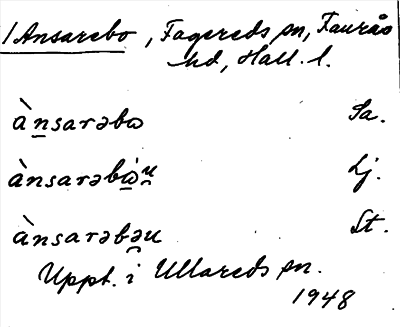 /Ansarebo, Fagereds sn, Faurås
hd, Hall. l.
àn̲sarəbω Sa.
ànsarəbὼ̲u̯ Lj.
ànsarəbə̯u St.
Uppt. i Ullareds sn.
1948